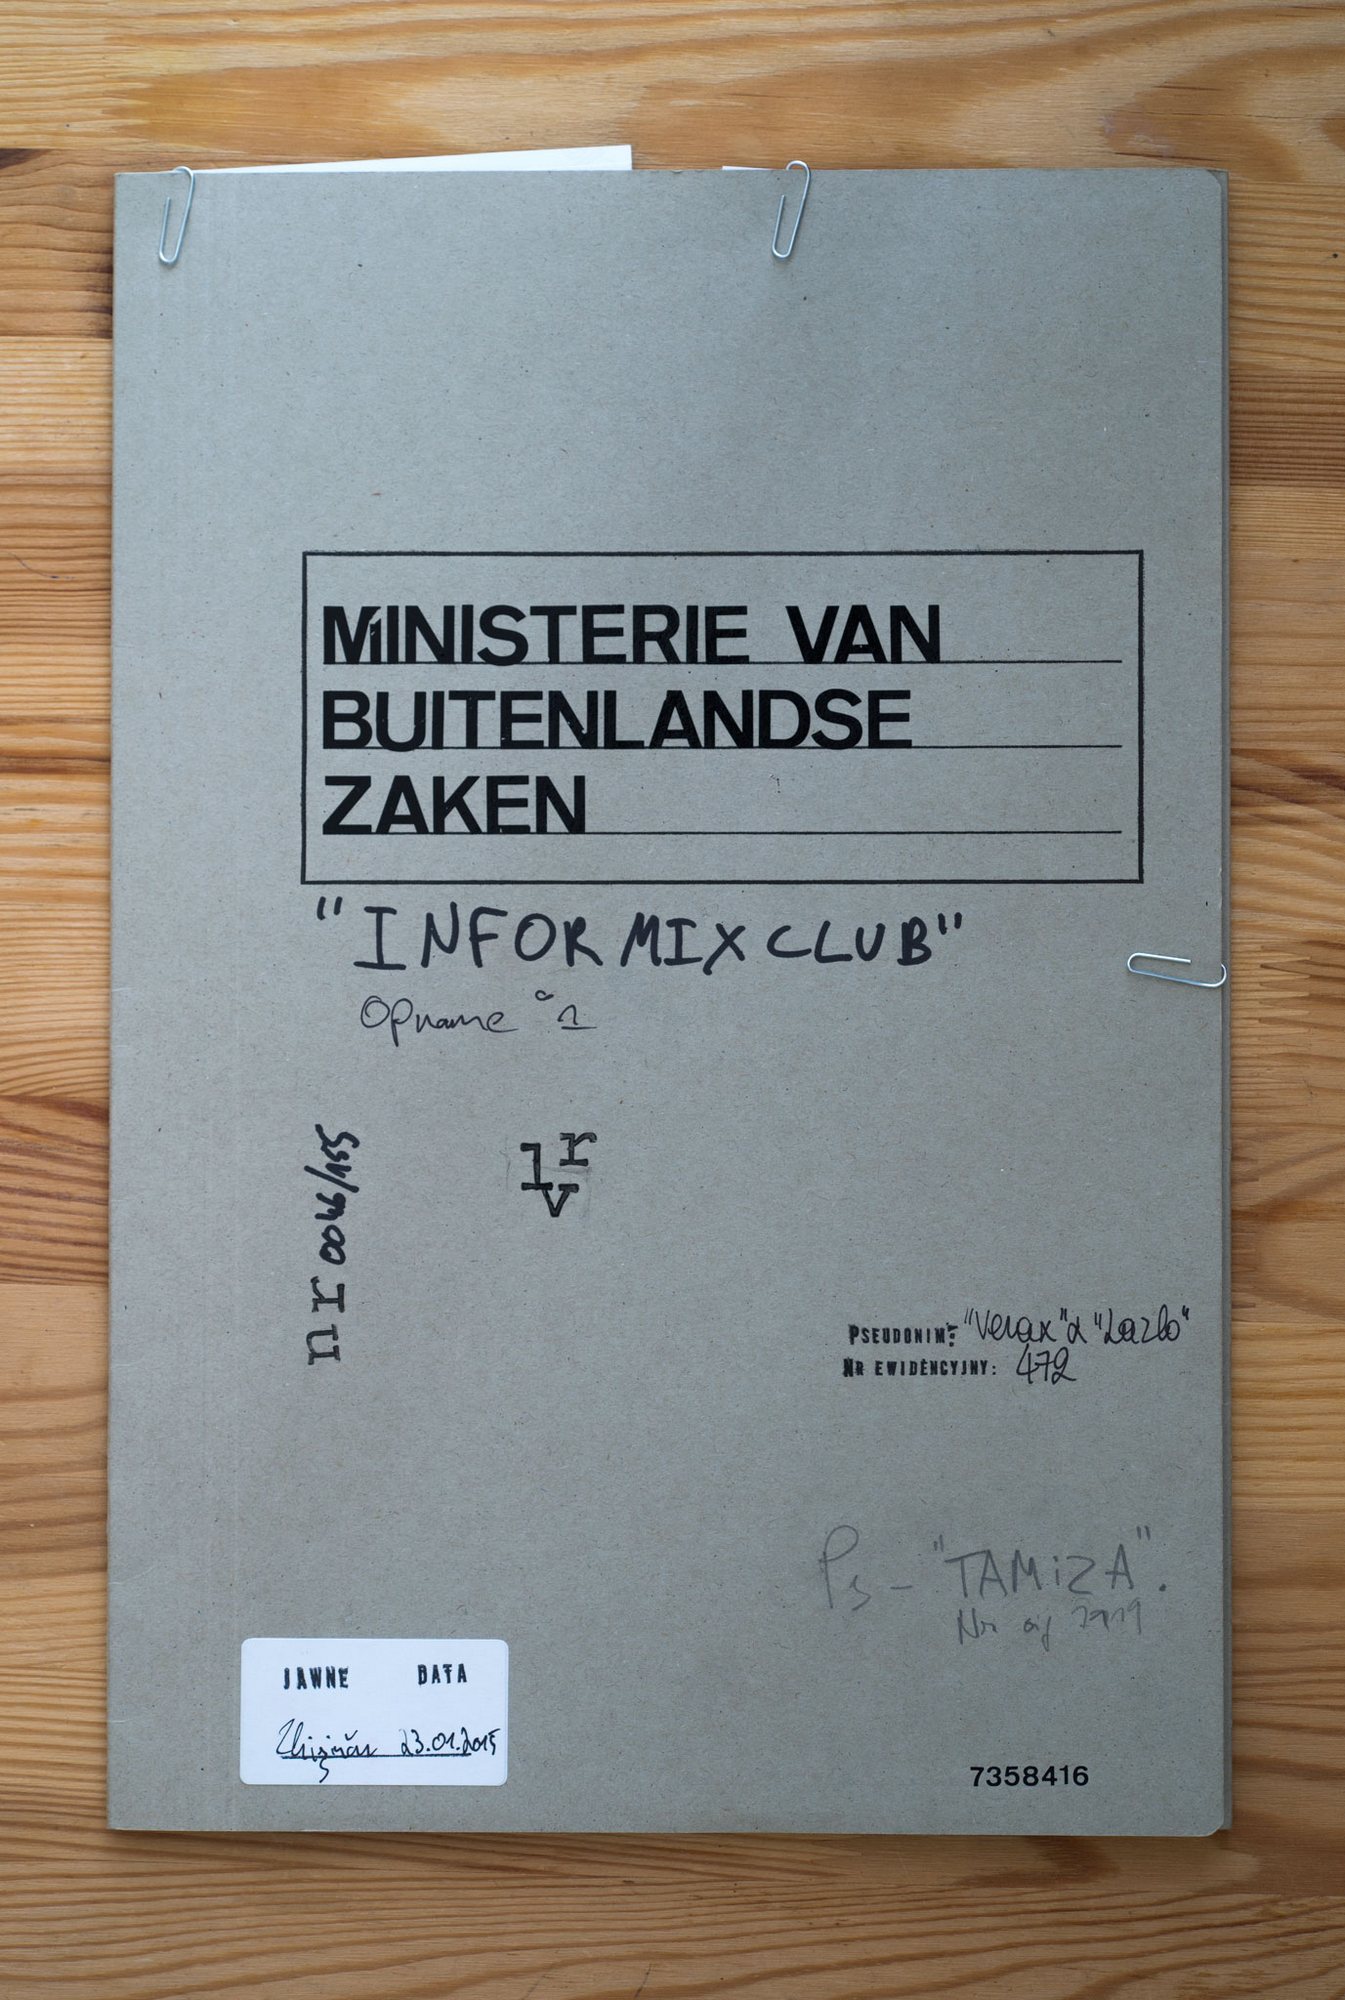 MINISTERIE VAN
BUITENLANDSE
ZAKEN
"INFORMIXCLUB"
Opname °1
nr 0046/155
lr
v
PSEUDONIM: "Verax" & "Lazlo"
NR EWIDENCYJNY: 472
Ps - "TAMiZA".
JAWNE DATA
23.01.2015
7358416